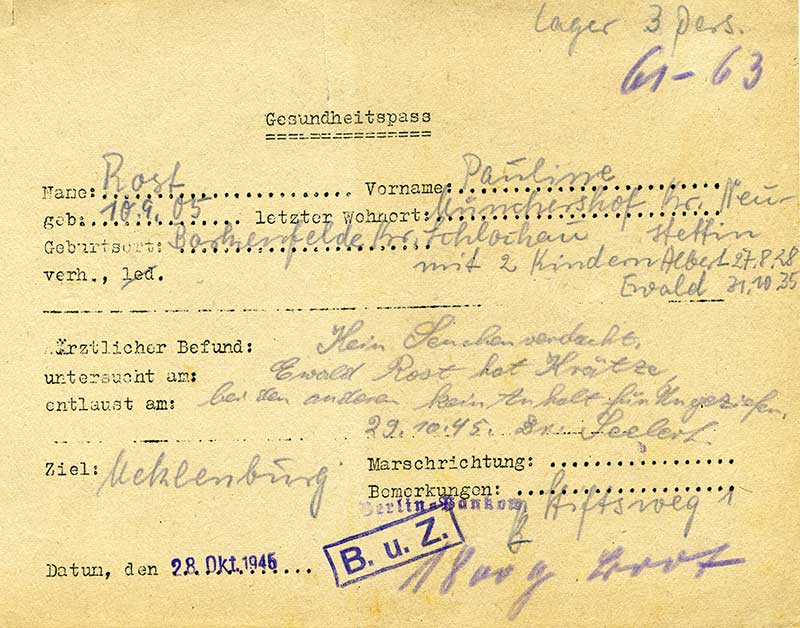 Lager 3 Pers.
61-63
Gesundheitspass
Name: Rost Vorname: Pauline
geb: 10.9.05 letzter Wohnort: Münchershof Kr. Neu-
Geburtsort: Barkenfelde Kr. Schlochau stettin
verh., led. mit 2 Kindern Albert 27.8.28
Ewald 31.10.35
Ärztlicher Befund: Kein Seuchenverdacht,
untersucht am: Ewald Rost hat Krätze,
entlaust am: bei den anderen kein Anhalt für Ungeziefer.
29.10.45. Dr. Seelert
Ziel: Meklenburg Marschrichtung:
Bemerkungen: Stiftsweg 1
Berlin-Pankow
B. u. Z.
Datum, den 28. Okt. 1945 1800 g Brot